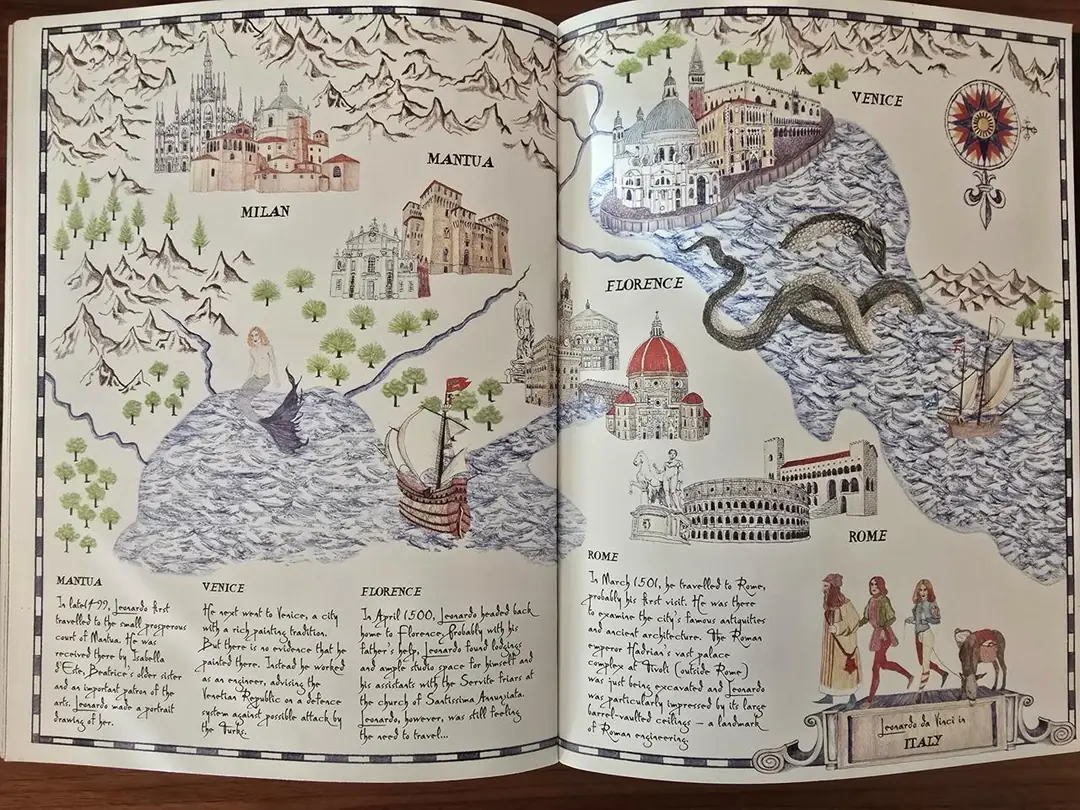 MILAN
MANTUA
VENICE
FLORENCE
ROME
MANTUA
In late 1499, Leonardo first
travelled to the small prosperous
court of Mantua. He was
received there by Isabella
d'Este, Beatrice's older sister
and an important patron of the
arts. Leonardo made a portrait
drawing of her.
VENICE
He next went to Venice, a city
with a rich painting tradition.
But there is no evidence that he
painted there. Instead he worked
as an engineer, advising the
Venetian Republic on a defence
system against possible attack by
the Turks.
FLORENCE
In April 1500, Leonardo headed back
home to Florence. Probably with his
father's help, Leonardo found lodgings
and ample studio space for himself and
his assistants with the Servite friars at
the church of Santissima Annunziata.
Leonardo, however, was still feeling
the need to travel...
ROME
In March 1501, he travelled to Rome,
probably his first visit. He was there
to examine the city's famous antiquities
and ancient architecture. The Roman
emperor Hadrian's vast palace
complex at Tivoli (outside Rome)
was just being excavated and Leonardo
was particularly impressed by its large
barrel-vaulted ceilings – a landmark
of Roman engineering.
Leonardo da Vinci in
ITALY